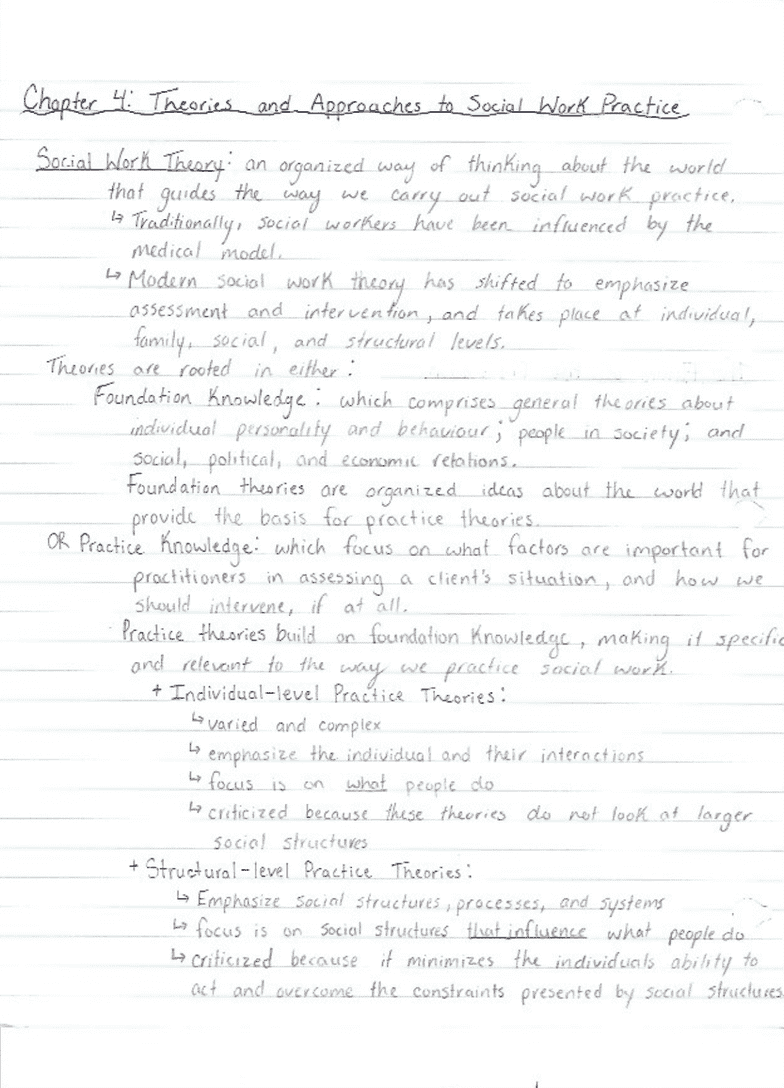 Chapter 4: Theories and Approaches to Social Work Practice
Social Work Theory: an organized way of thinking about the world
that guides the way we carry out social work practice.
↳ Traditionally, social workers have been influenced by the
medical model.
↳ Modern social work theory has shifted to emphasize
assessment and intervention, and takes place at individual,
family, social, and structural levels.
Theories are rooted in either:
Foundation Knowledge: which comprises general theories about
individual personality and behaviour; people in society; and
social, political, and economic relations.
Foundation theories are organized ideas about the world that
provide the basis for practice theories.
OR Practice Knowledge: which focus on what factors are important for
practitioners in assessing a client's situation, and how we
should intervene, if at all.
Practice theories build on foundation knowledge, making it specific
and relevant to the way we practice social work.
+ Individual-level Practice Theories:
↳ varied and complex
↳ emphasize the individual and their interactions
↳ focus is on what people do
↳ criticized because these theories do not look at larger
social structures
+ Structural-level Practice Theories:
↳ Emphasize social structures, processes, and systems
↳ focus is on social structures that influence what people do
↳ criticized because it minimizes the individuals ability to
act and overcome the constraints presented by social structures